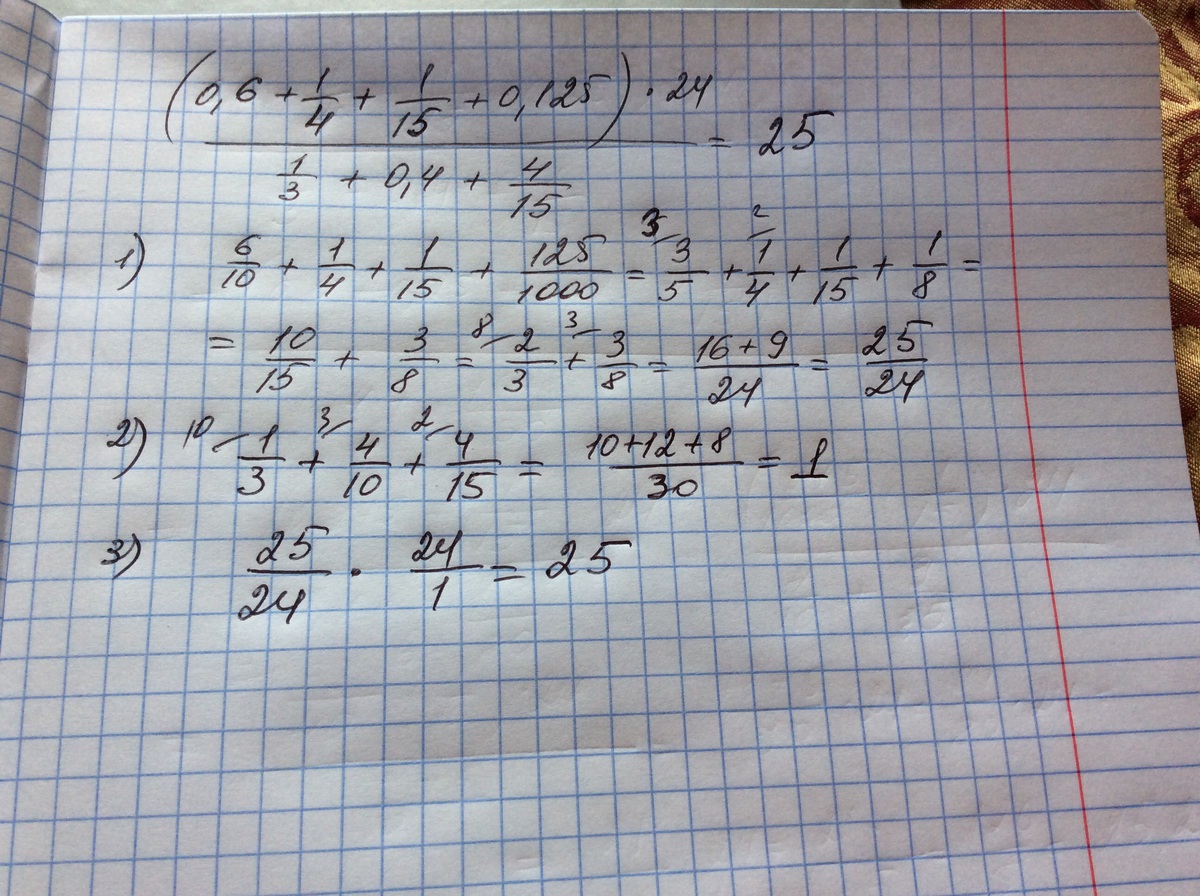 (0,6 + 1/4 + 1/15 + 0,125) · 24
= 25
1/3 + 0,4 + 4/15
1) 6/10 + 1/4 + 1/15 + 125/1000 = 3/ 3/5 + 2/ 1/4 + 1/15 + 1/8 =
= 10/15 + 3/8 = 8/ 2/3 + 3/ 3/8 = 16+9/24 = 25/24
2) 10/ 1/3 + 3/ 4/10 + 2/ 4/15 = 10+12+8/30 = 1
3) 25/24 · 24/1 = 25